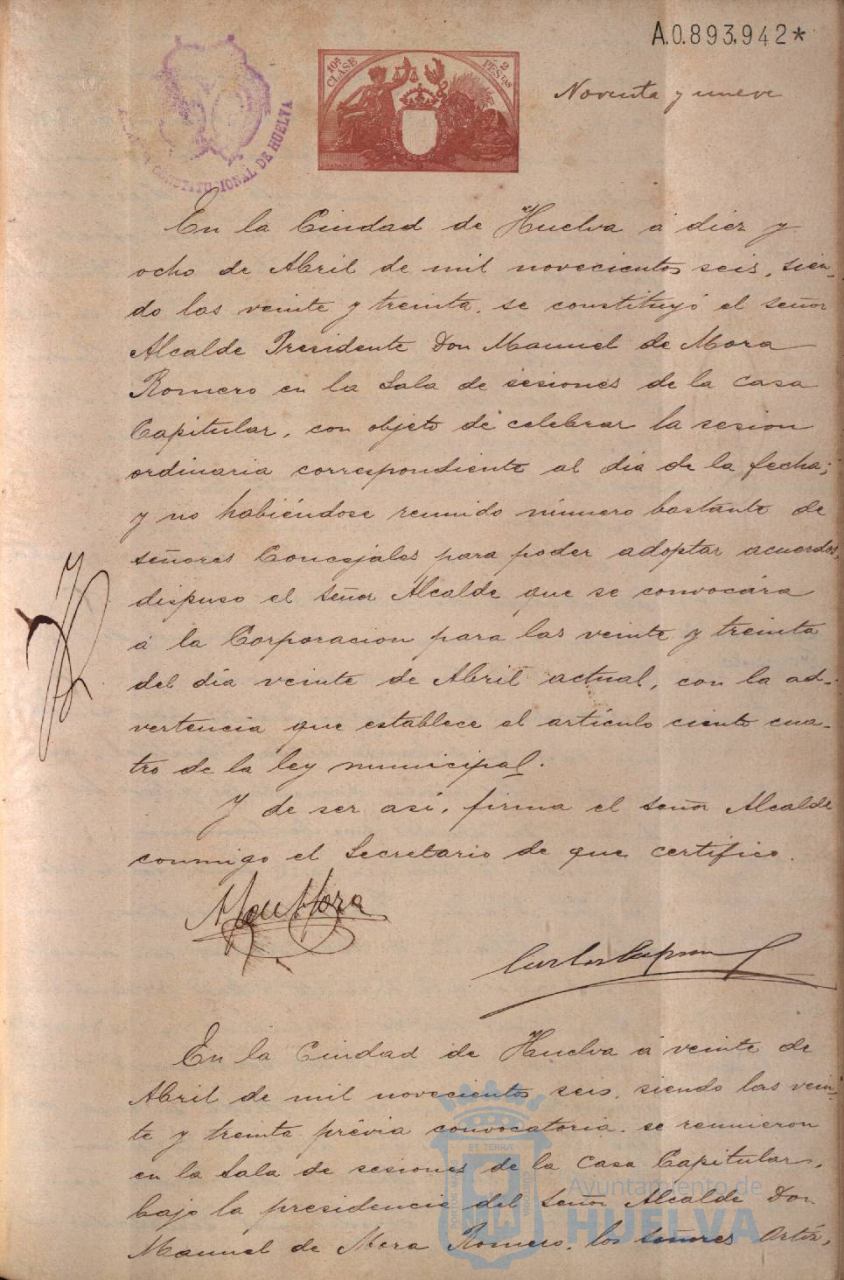 A.0.893.942*
10ª CLASE 2 PESETAS
CONSTITUCIONAL DE HUELVA
Noventa y nueve
En la Ciudad de Huelva á diez y
ocho de Abril de mil novecientos seis, sien-
do las veinte y treinta, se constituyó el señor
Alcalde Presidente Don Manuel de Mora
Romero en la Sala de sesiones de la Casa
Capitular, con objeto de celebrar la sesion
ordinaria correspondiente al dia de la fecha;
y no habiéndose reunido número bastante de
señores Concejales para poder adoptar acuerdos,
dispuso el Señor Alcalde que se convocára
á la Corporacion para las veinte y treinta
del dia veinte de Abril actual, con la ad-
vertencia que establece el artículo ciento cua-
tro de la ley municipal.
Y de ser así, firma el Señor Alcalde
conmigo el Secretario de que certifico.
Man Mora
Carlos
En la Ciudad de Huelva á veinte de
Abril de mil novecientos seis, siendo las vein-
te y treinta prévia convocatoria, se reunieron
en la Sala de sesiones de la Casa Capitular,
bajo la presidencia del Señor Alcalde Don
Manuel de Mora Romero, los señores
Ayuntamiento de
HUELVA